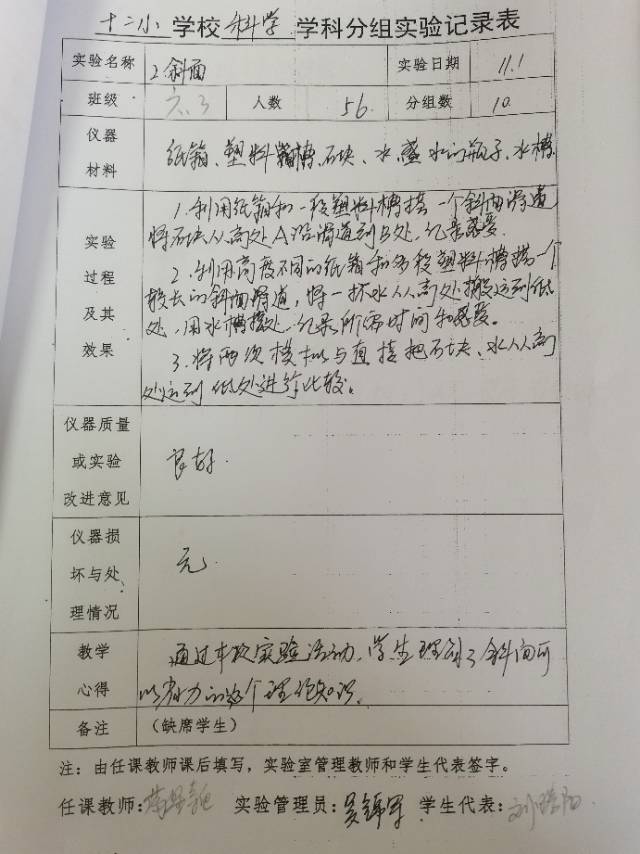 十二小 学校 科学 学科分组实验记录表
实验名称 2.斜面 实验日期 11.1
班级 六.3 人数 56. 分组数 10
仪器材料 纸箱、塑料槽、石块、水、盛水的瓶子、水槽
实验过程及其效果
1.利用纸箱和一段塑料槽搭一个斜面滑道
将石块从高处A沿滑道到B处,记录感受.
2.利用高度不同的纸箱和多段塑料槽搭一个
较长的斜面滑道,将一杯水从高处搬运到低
处,用水槽接处.记录所需时间和感受。
3.将两次模拟与直接把石块、水从高
处运到低处进行比较。
仪器质量或实验改进意见 良好.
仪器损坏与处理情况 无
教学心得
通过本次实验活动,学生理解了斜面可
以省力的这个理论知识。
备注 (缺席学生)
注:由任课教师课后填写,实验室管理教师和学生代表签字。
任课教师: 实验管理员:吴锦军 学生代表:刘